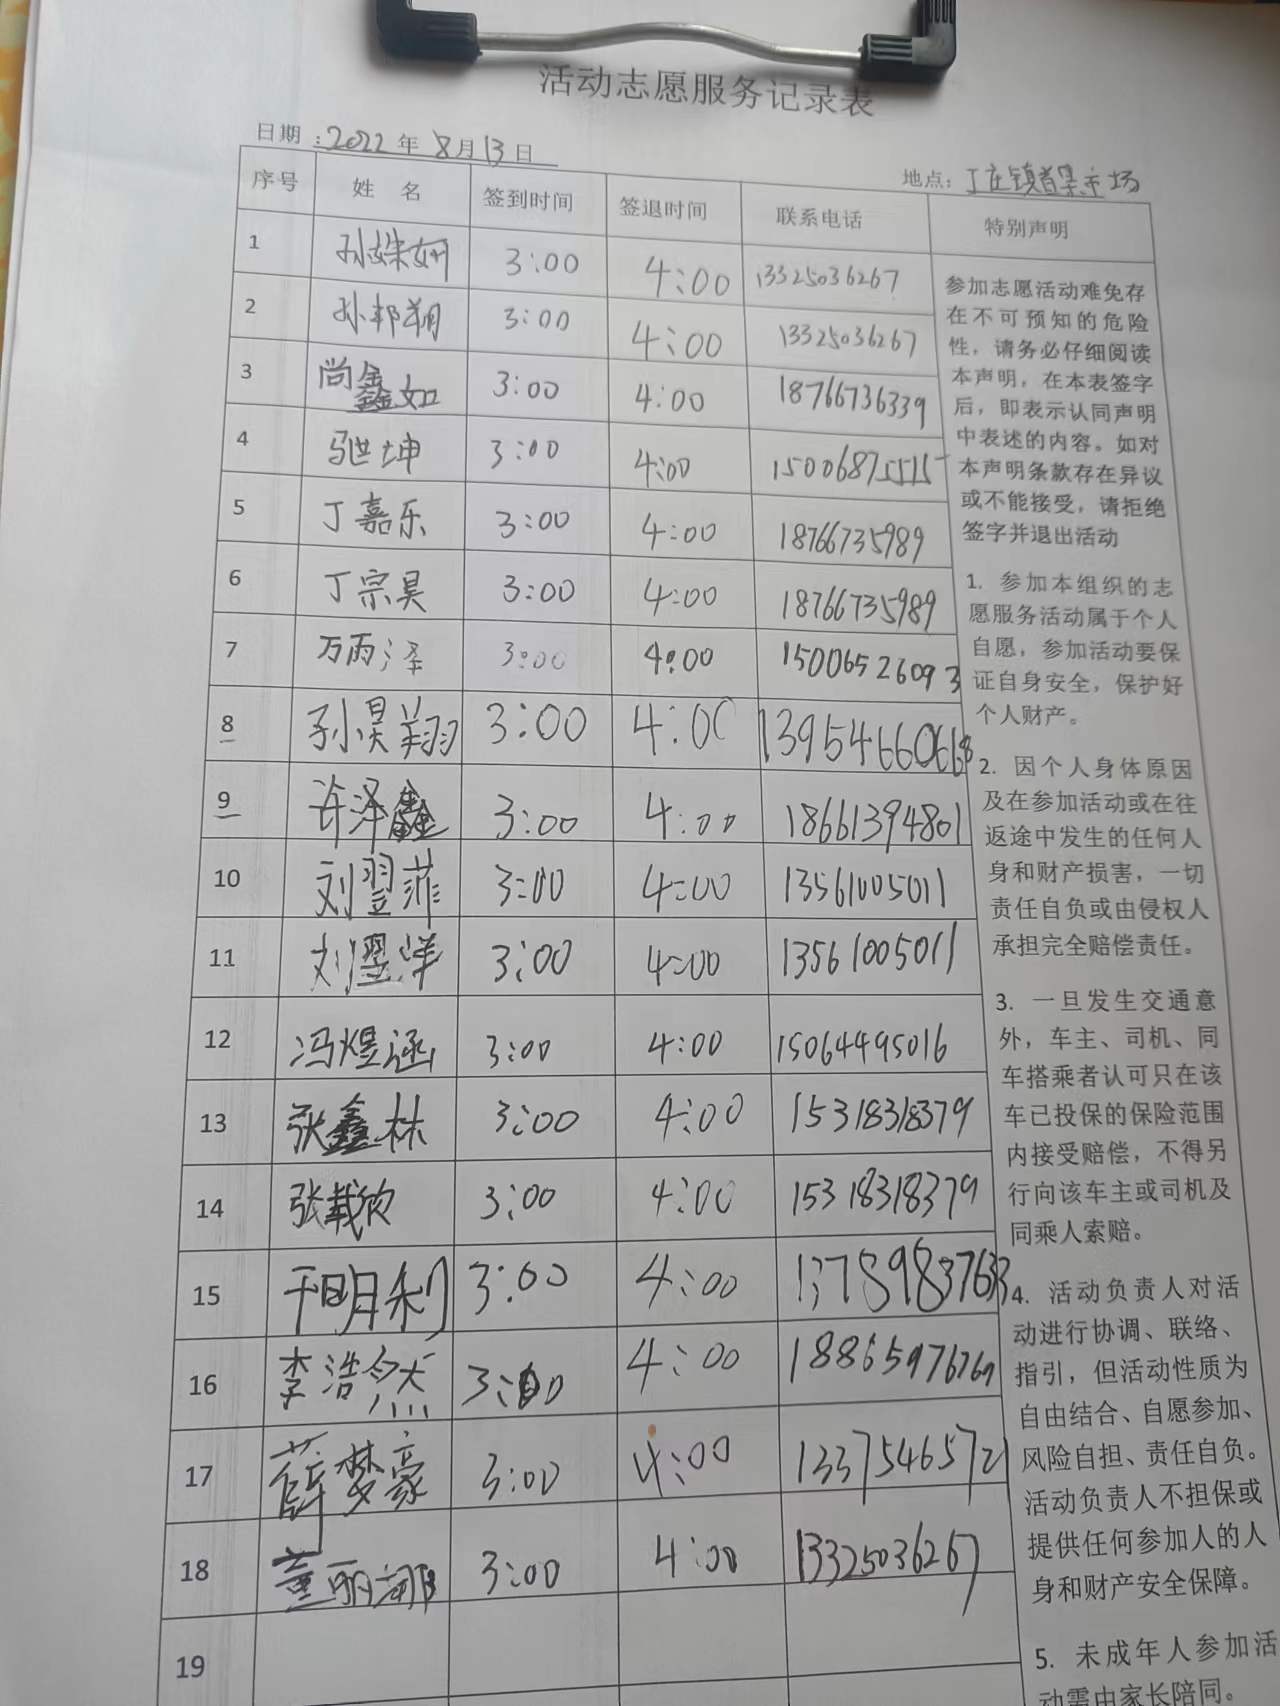 活动志愿服务记录表
日期:2022年8月13日
地点:丁庄镇首集市场
序号 姓 名 签到时间 签退时间 联系电话 特别声明
1 孙姝妍 3:00 4:00 13325036267
2 孙邦翔 3:00 4:00 13325036267
3 尚鑫如 3:00 4:00 18766736339
4 3:00 4:00 15006875515
5 丁嘉乐 3:00 4:00 18766735989
6 丁宗昊 3:00 4:00 18766735989
7 万雨泽 3:00 4:00 15006526093
8 孙昊翔 3:00 4:00 13954660668
9 许泽鑫 3:00 4:00 18661394801
10 刘翌菲 3:00 4:00 13561005011
11 刘翌洋 3:00 4:00 13561005011
12 冯煜涵 3:00 4:00 15064495016
13 张鑫林 3:00 4:00 15318318379
14 张载欣 3:00 4:00 15318318379
15 3:00 4:00
16 李浩然 3:00 4:00 18865976769
17 薛梦豪 3:00 4:00 13375465721
18 董丽娜 3:00 4:00 13325036267
19
参加志愿活动难免存
在不可预知的危险
性，请务必仔细阅读
本声明，在本表签字
后，即表示认同声明
中表述的内容。如对
本声明条款存在异议
或不能接受，请拒绝
签字并退出活动
1. 参加本组织的志
愿服务活动属于个人
自愿，参加活动要保
证自身安全，保护好
个人财产。
2. 因个人身体原因
及在参加活动或在往
返途中发生的任何人
身和财产损害，一切
责任自负或由侵权人
承担完全赔偿责任。
3. 一旦发生交通意
外，车主、司机、同
车搭乘者认可只在该
车已投保的保险范围
内接受赔偿，不得另
行向该车主或司机及
同乘人索赔。
4. 活动负责人对活
动进行协调、联络、
指引，但活动性质为
自由结合、自愿参加、
风险自担、责任自负。
活动负责人不担保或
提供任何参加人的人
身和财产安全保障。
5. 未成年人参加活
动需由家长陪同。